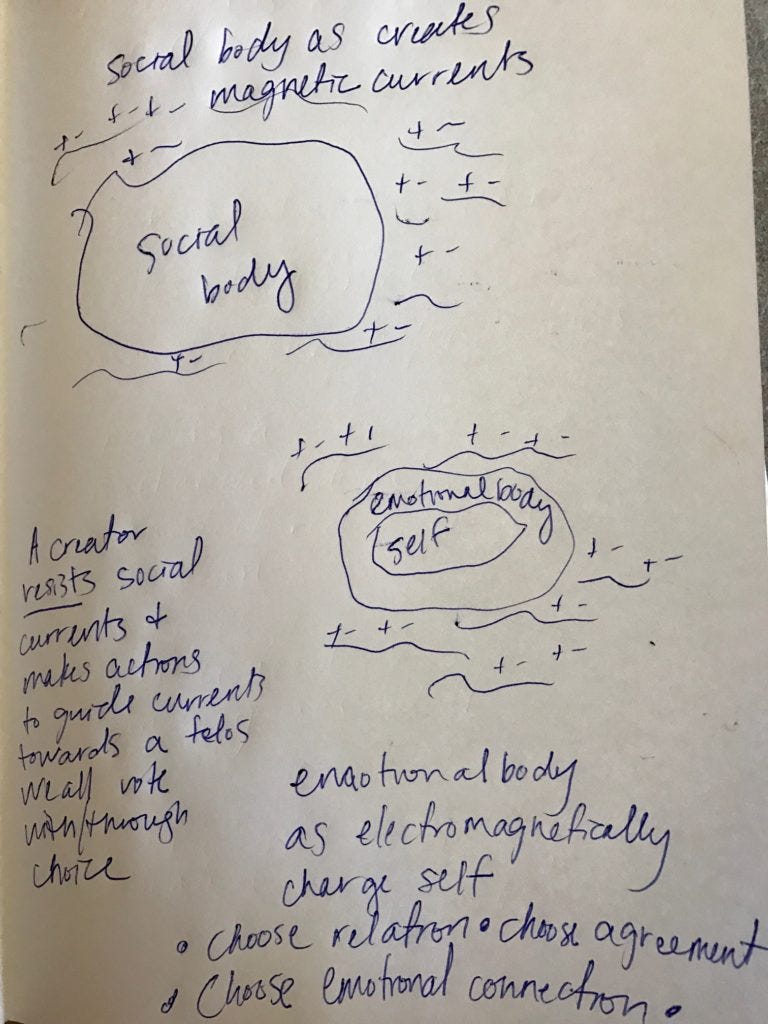 social body as creates
magnetic currents
+ - + - + -
+ -
+ -
+ - + -
+ -
+ -
+ -
social
body
+ - + ı
+ - + -
emotional body
self
+ - + -
+ -
+ - + -
+ - + -
A creator
resists social
currents &
makes actions
to guide currents
towards a telos
We all vote
with/through
choice
emotional body
as electromagnetically
charge self
• choose relation • choose agreement
• Choose emotional connection •